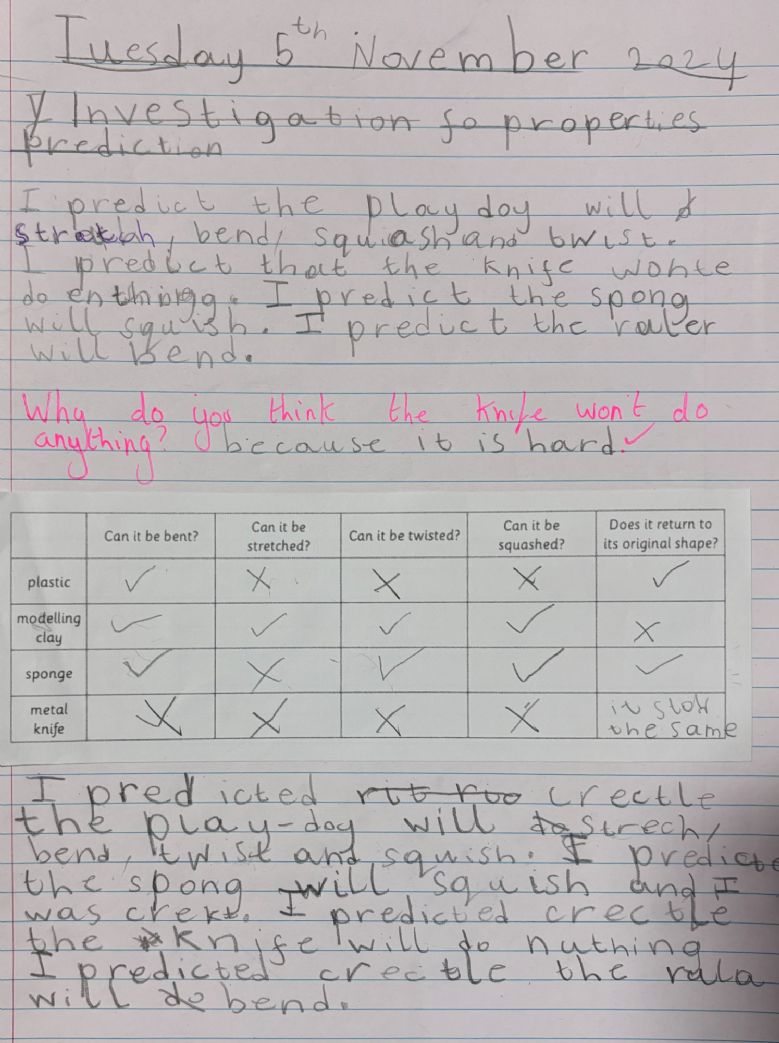 Tuesday 5th November 2024
Investigation fo properties
prediction
I predict the play doy will
strech, bend, squash and twist.
I predict that the knife wonte
do enthing. I predict the spong
will squish. I predict the ruler
will bend.
Why do you think the knife won't do
anything? because it is hard. ✓
Can it be bent? Can it be stretched? Can it be twisted? Can it be squashed? Does it return to its original shape?
plastic ✓ X X X ✓
modelling clay ✓ ✓ ✓ ✓ X
sponge ✓ X ✓ ✓ ✓
metal knife X X X X it slow the same
I predicted crectle
the play-dog will strech,
bend, twist and squish. I predicte
the spong will squish and I
was crekt. I predicted crectle
the knife will do nuthing
I predicted crectle the rula
will bend.